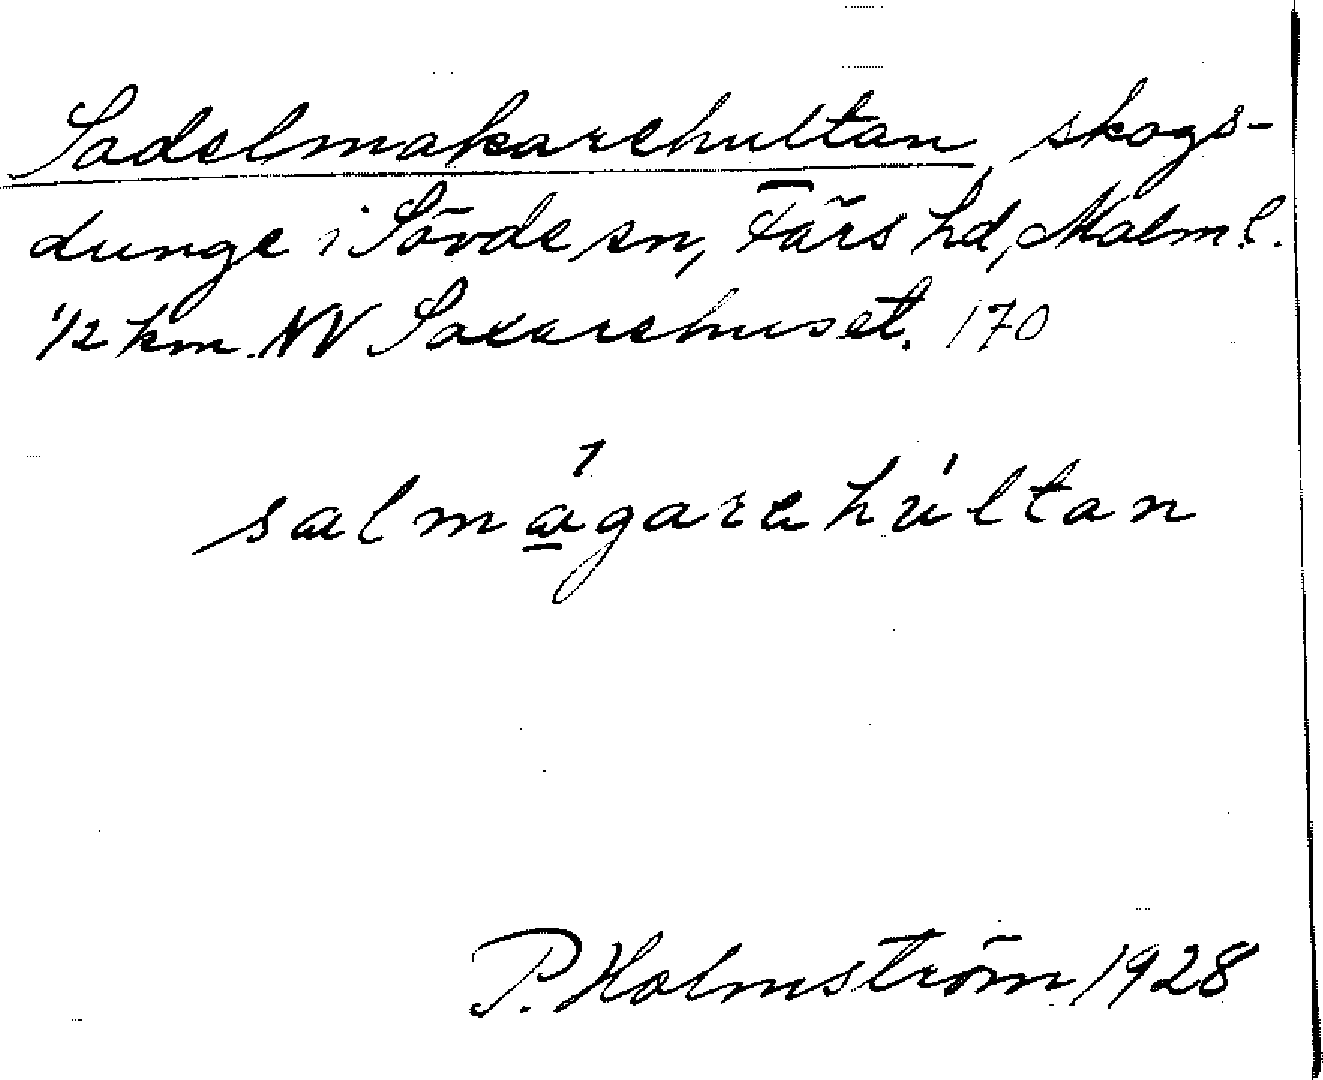 Sadelmakarehultan skogs-
dunge i Sövde sn, Färs hd, Malm.l.
1/2 km. NV Saxarehuset. 170
salmagarehultan
P. Holmström 1928